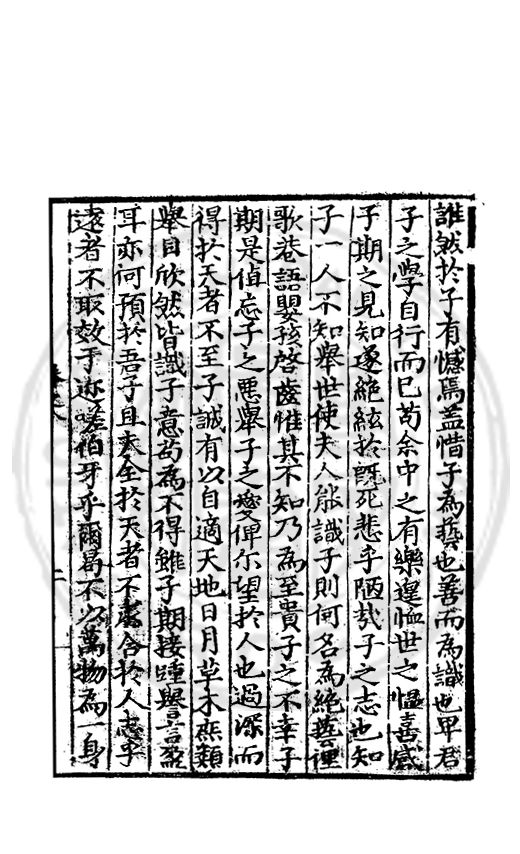 誰然於子有憾焉盖惜子為藝也善而為識也卑君
子之學自行而已苟余中之有樂遑恤世之愠喜感
子期之見知遂絶絃於既死悲乎陋哉子之志也知
子一人不知舉世使夫人能識子則何名為絶藝俚
歌巷語嬰孩啓齒惟其不知乃為至貴子之不幸子
期是值忘子之悪舉子之愛俾尓望於人也過深而
得於天者不至子誠有以自適天地日月草木庶類
舉目欣然皆識子意苟為不得雖子期接踵譽言盈
耳亦何預於吾子且夫全於天者不
含於人志乎
遠者不取效于迩嗟伯牙乎爾曷不以萬物為一身